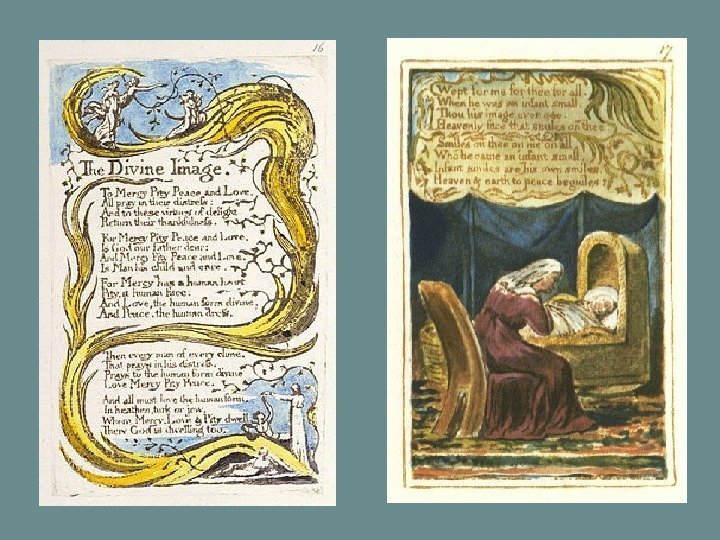 16
The Divine Image.
To Mercy Pity Peace and Love,
All pray in their distress:
And to these virtues of delight
Return their thankfulness.
For Mercy Pity Peace and Love,
Is God our father dear:
And Mercy Pity Peace and Love,
Is Man his child and care.
For Mercy has a human heart
Pity, a human face:
And Love, the human form divine,
And Peace, the human dress.
Then every man of every clime,
That prays in his distress,
Prays to the human form divine
Love Mercy Pity Peace.
And all must love the human form,
In heathen, turk or jew.
Where Mercy, Love & Pity dwell,
There God is dwelling too.
17
Wept for me for thee for all,
When he was an infant small.
Thou his image ever see.
Heavenly face that smiles on thee.
Smiles on thee on me on all,
Who became an infant small,
Infant smiles are his own smiles.
Heaven & earth to peace beguiles.